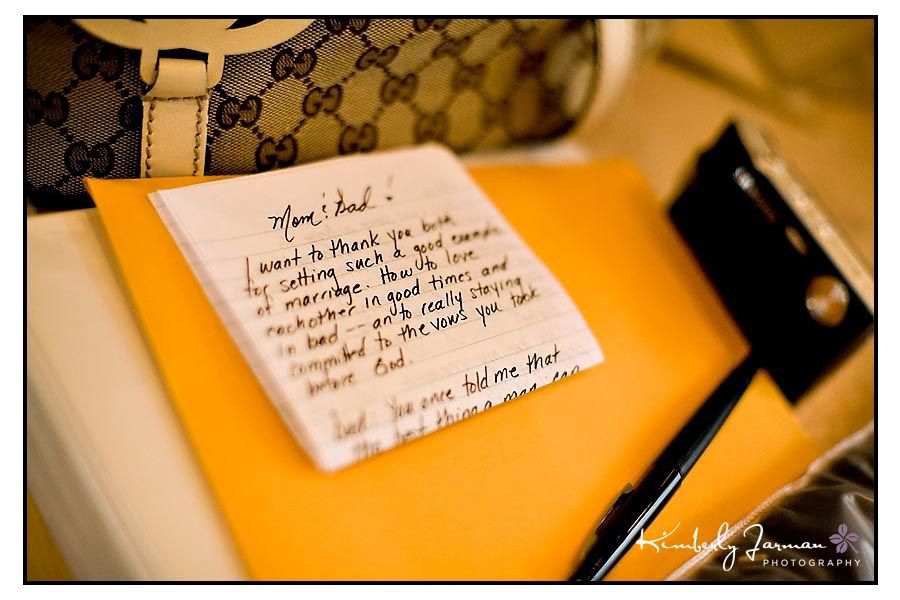 Mom & Dad!
I want to thank you both
for setting such a good example
of marriage. How to love
eachother in good times and
in bad -- an to really staying
committed to the vows you took
before God.
Dad. You once told me that
the best thing a man can
Kimberly Jarman
PHOTOGRAPHY